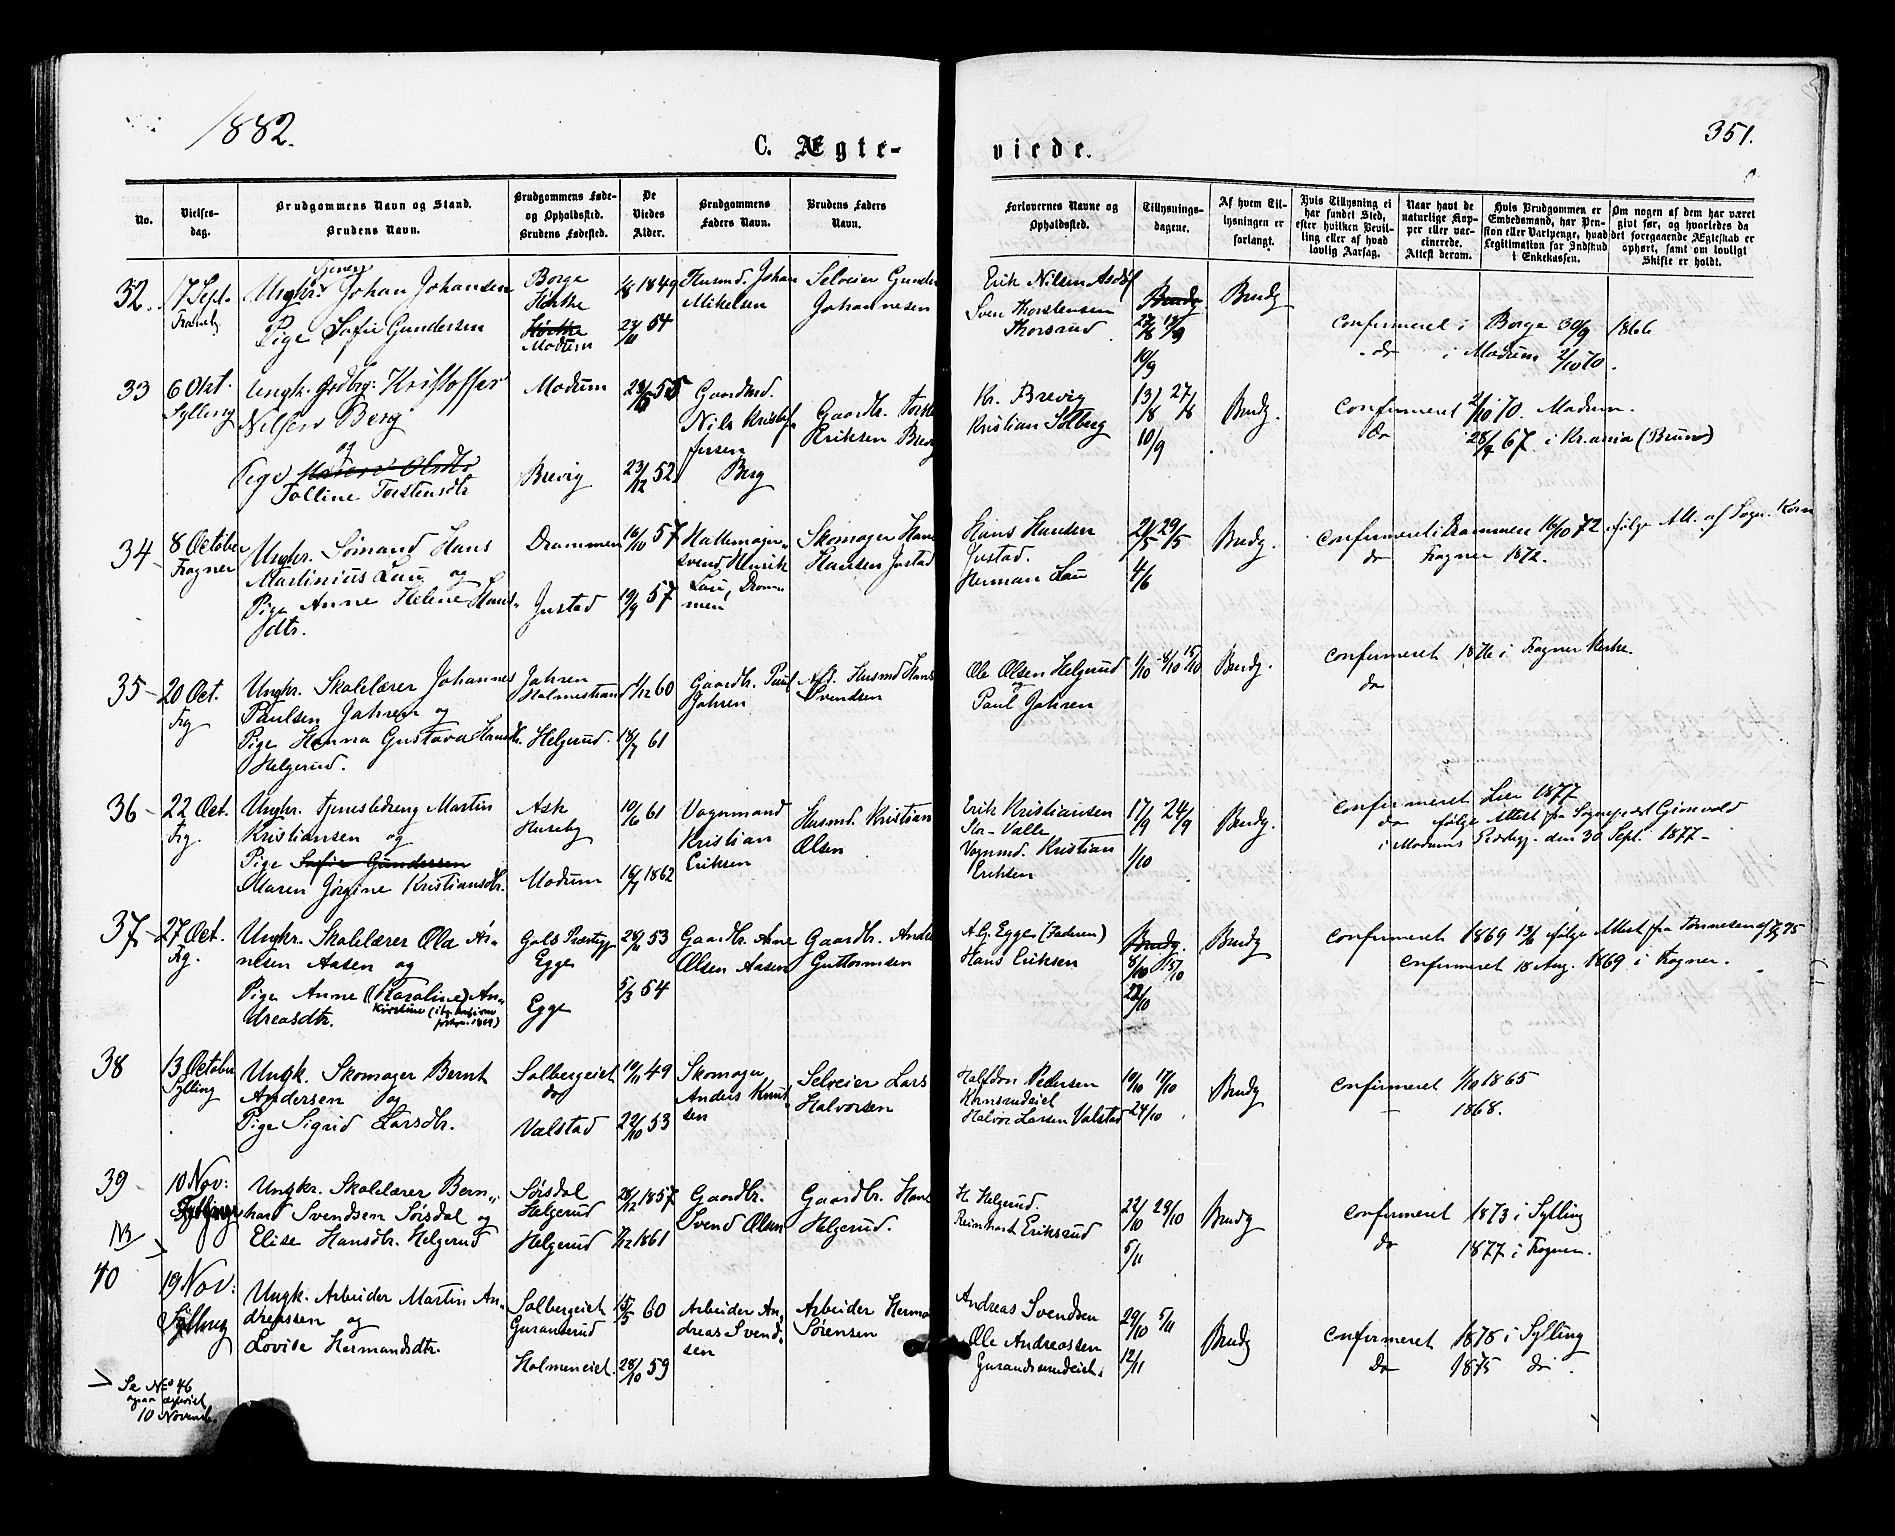 1882.
C. Ægte-
viede.
351.
No.
Vielses-
dag.
Brudgommens Navn og Stand.
Brudens Navn.
Brudgommens Føde-
og Opholdssted.
Brudens Fødested.
De
Viedes
Alder.
Brudgommens
Faders Navn.
Brudens Faders
Navn.
Forlovernes Navne og
Opholdssted.
Tillysnings-
dagene.
Af hvem Til-
lysningen er
forlangt.
Hvis Tillysning ei
har fundet Sted,
efter hvilken Bevil-
ling eller af hvad
lovlig Aarsag.
Naar havt de
naturlige Kop-
per eller vac-
cinerede.
Attest derom.
Hvis Brudgommen er
Embedsmand, har Pen-
sion eller Vartpenge, hvad
Legitimation for Indskud
i Enkekassen.
Om nogen af dem har været
givt før, og hvorledes da
det foregaaende Ægteskab er
ophørt, samt om lovligt
Skifte er holdt.
32.
17 Sept.
Ungkr. Johan Johansen
Pige Sofie Gundersen
Borge
Modum
1849
24/11 54
Husmd. Johan
Mikelsen
Selveier Gunder
Johannesen
Erik Nilsen
Sven Thorstensen
Thorsrud
Brudg.
10/9
Brudg
Confirmeret i Borge 30/9 1866
do i Modum 2/10 70.
33
6 Okt.
Sylling
Ungk. Grdbr: Kristoffer
Nilsen Berg
og
Pige
Tolline Torstensdtr
Modum
Brevig
23/12 52
Gaardmd.
Nils Kristof-
fersen
Berg
Gaardbr.
Eriksen Brevig
Kr. Brevig
Kristian Solberg
13/8 27/8
10/9
Brudg.
Confirmeret 2/10 70. Modum.
do 28/4 67 i Kr.ania (Brun)
34
8 October
Frogner
Ungkr. Sømand Hans
Martinius Lau og
Pige Anne Helene Hans-
dtr.
Drammen
Justad
16/10 57
19/9 57
svend, Henrik
Lau, Dram-
men
Skomager Hans
Hansen Justad
Hans Hansen
Justad.
Herman Lau
21/5 29/5
4/6
Brudg.
confirmeret i Drammen 16/10 72 ifølge Att. af Sogn. Korn
do Frogner 1872.
35
20 Oct.
Frg
Ungkr. Skolelærer Johannes
Paulsen Jahren og
Pige Hanna Gustava Hansdtr.
Helgerud.
Jahren
Holmestrand
Helgerud.
1/12 60
18/7 61
Gaardbr. Paul
Jahren
Afd. Husmd Hans
Svendsen
Ole Olsen Helgerud
og
Paul Jahren
1/10 8/10 15/10
Brudg.
Confirmeret 1876 i Frogner Kirke.
do
36
22 Oct.
Frg.
Ungkr. Tjenestedreng Martin
Kristiansen og
Pige Sofie Gundersen
Maren Jørgine Kristiansdtr.
Ask
Huseby
Modum
10/6 61
16/7 1862
Vognmand
Kristian
Eriksen
Husmd. Kristian
Olsen
Erik Kristiansen
Valle
Vognmd. Kristian
Eriksen
17/9 24/9
1/10
Brudg.
Confirmeret Lier 1877
do ifølge Attest fra Sognepræst Grimvold
i Modums Præstegj. den 30 Sept. 1877
37
27 Oct.
Frg.
Ungkr. Skolelærer Ole Ar-
nesen Aasen og
Pige Anne (Karoline) An-
dreasdtr.
Kirstine
Gols Præstegj.
Egge
Egge
53
5/3 54
Gaardbr. Arne
Olsen Aasen
Gaardbr. Andreas
Guttormsen
A. G. Egge (Faderen)
Hans Eriksen
Brudg.
8/10 15/10
22/10
Brudg
Confirmeret 1869 13/6 ifølge Attest fra
Confirmeret 18 Aug. 1869 i Frogner.
38
13 October
Sylling
Ungk. Skomager Bernt
Andersen og
Pige Sigrid Larsdtr.
Solbergeiet
do
Valstad
19/11 49
22/10 53
Skomager
Anders Knut-
sen
Selveier Lars
Halvorsen
Halfdan Pedersen
Halvor Larsen Valstad
10/10 17/10
24/10
Brudg
Confirmeret 1/10 1865
1868.
39
10 Nov:
Ungkr. Skolelærer Bern-
hard Svendsen Sørsdal og
Elise Hansdtr. Helgerud
Sørsdal
Helgerud
Helgerud
28/12 1857
7/12 1861
Gaardbr.
Svend Olsen
Gaardbr. Hans
Helgerud.
H. Helgerud.
Reinhart Eriksrud
22/10 29/10
5/11
Brudg
Confirmeret 1873 i Sylling
do 1877 i Frogner.
NB
40
19 Nov:
Sylling
Ungk. Arbeider Martin An-
dreassen og
Lovise Hermandsdtr.
Solbergeiet
Holmeneiet
15/5 60
28/10 59
Arbeider An-
dreas Svend-
sen
Arbeider Herman
Sørensen
Andreas Svendsen
Ole Andreassen
29/10 5/11
12/11
Brudg
Confirmeret 1875 i Sylling
Do 1875 do.
Se No 46
ogsaa ægteviet
10 Novemb.